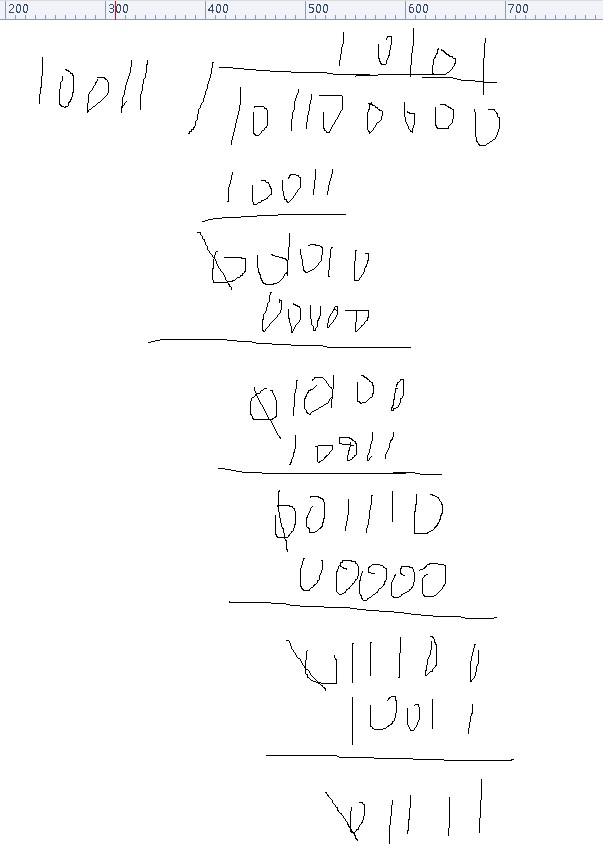 200 300 400 500 600 700
10101
10011 / 101100000
10011
001010
00000
010100
10011
001110
00000
011100
10011
01111